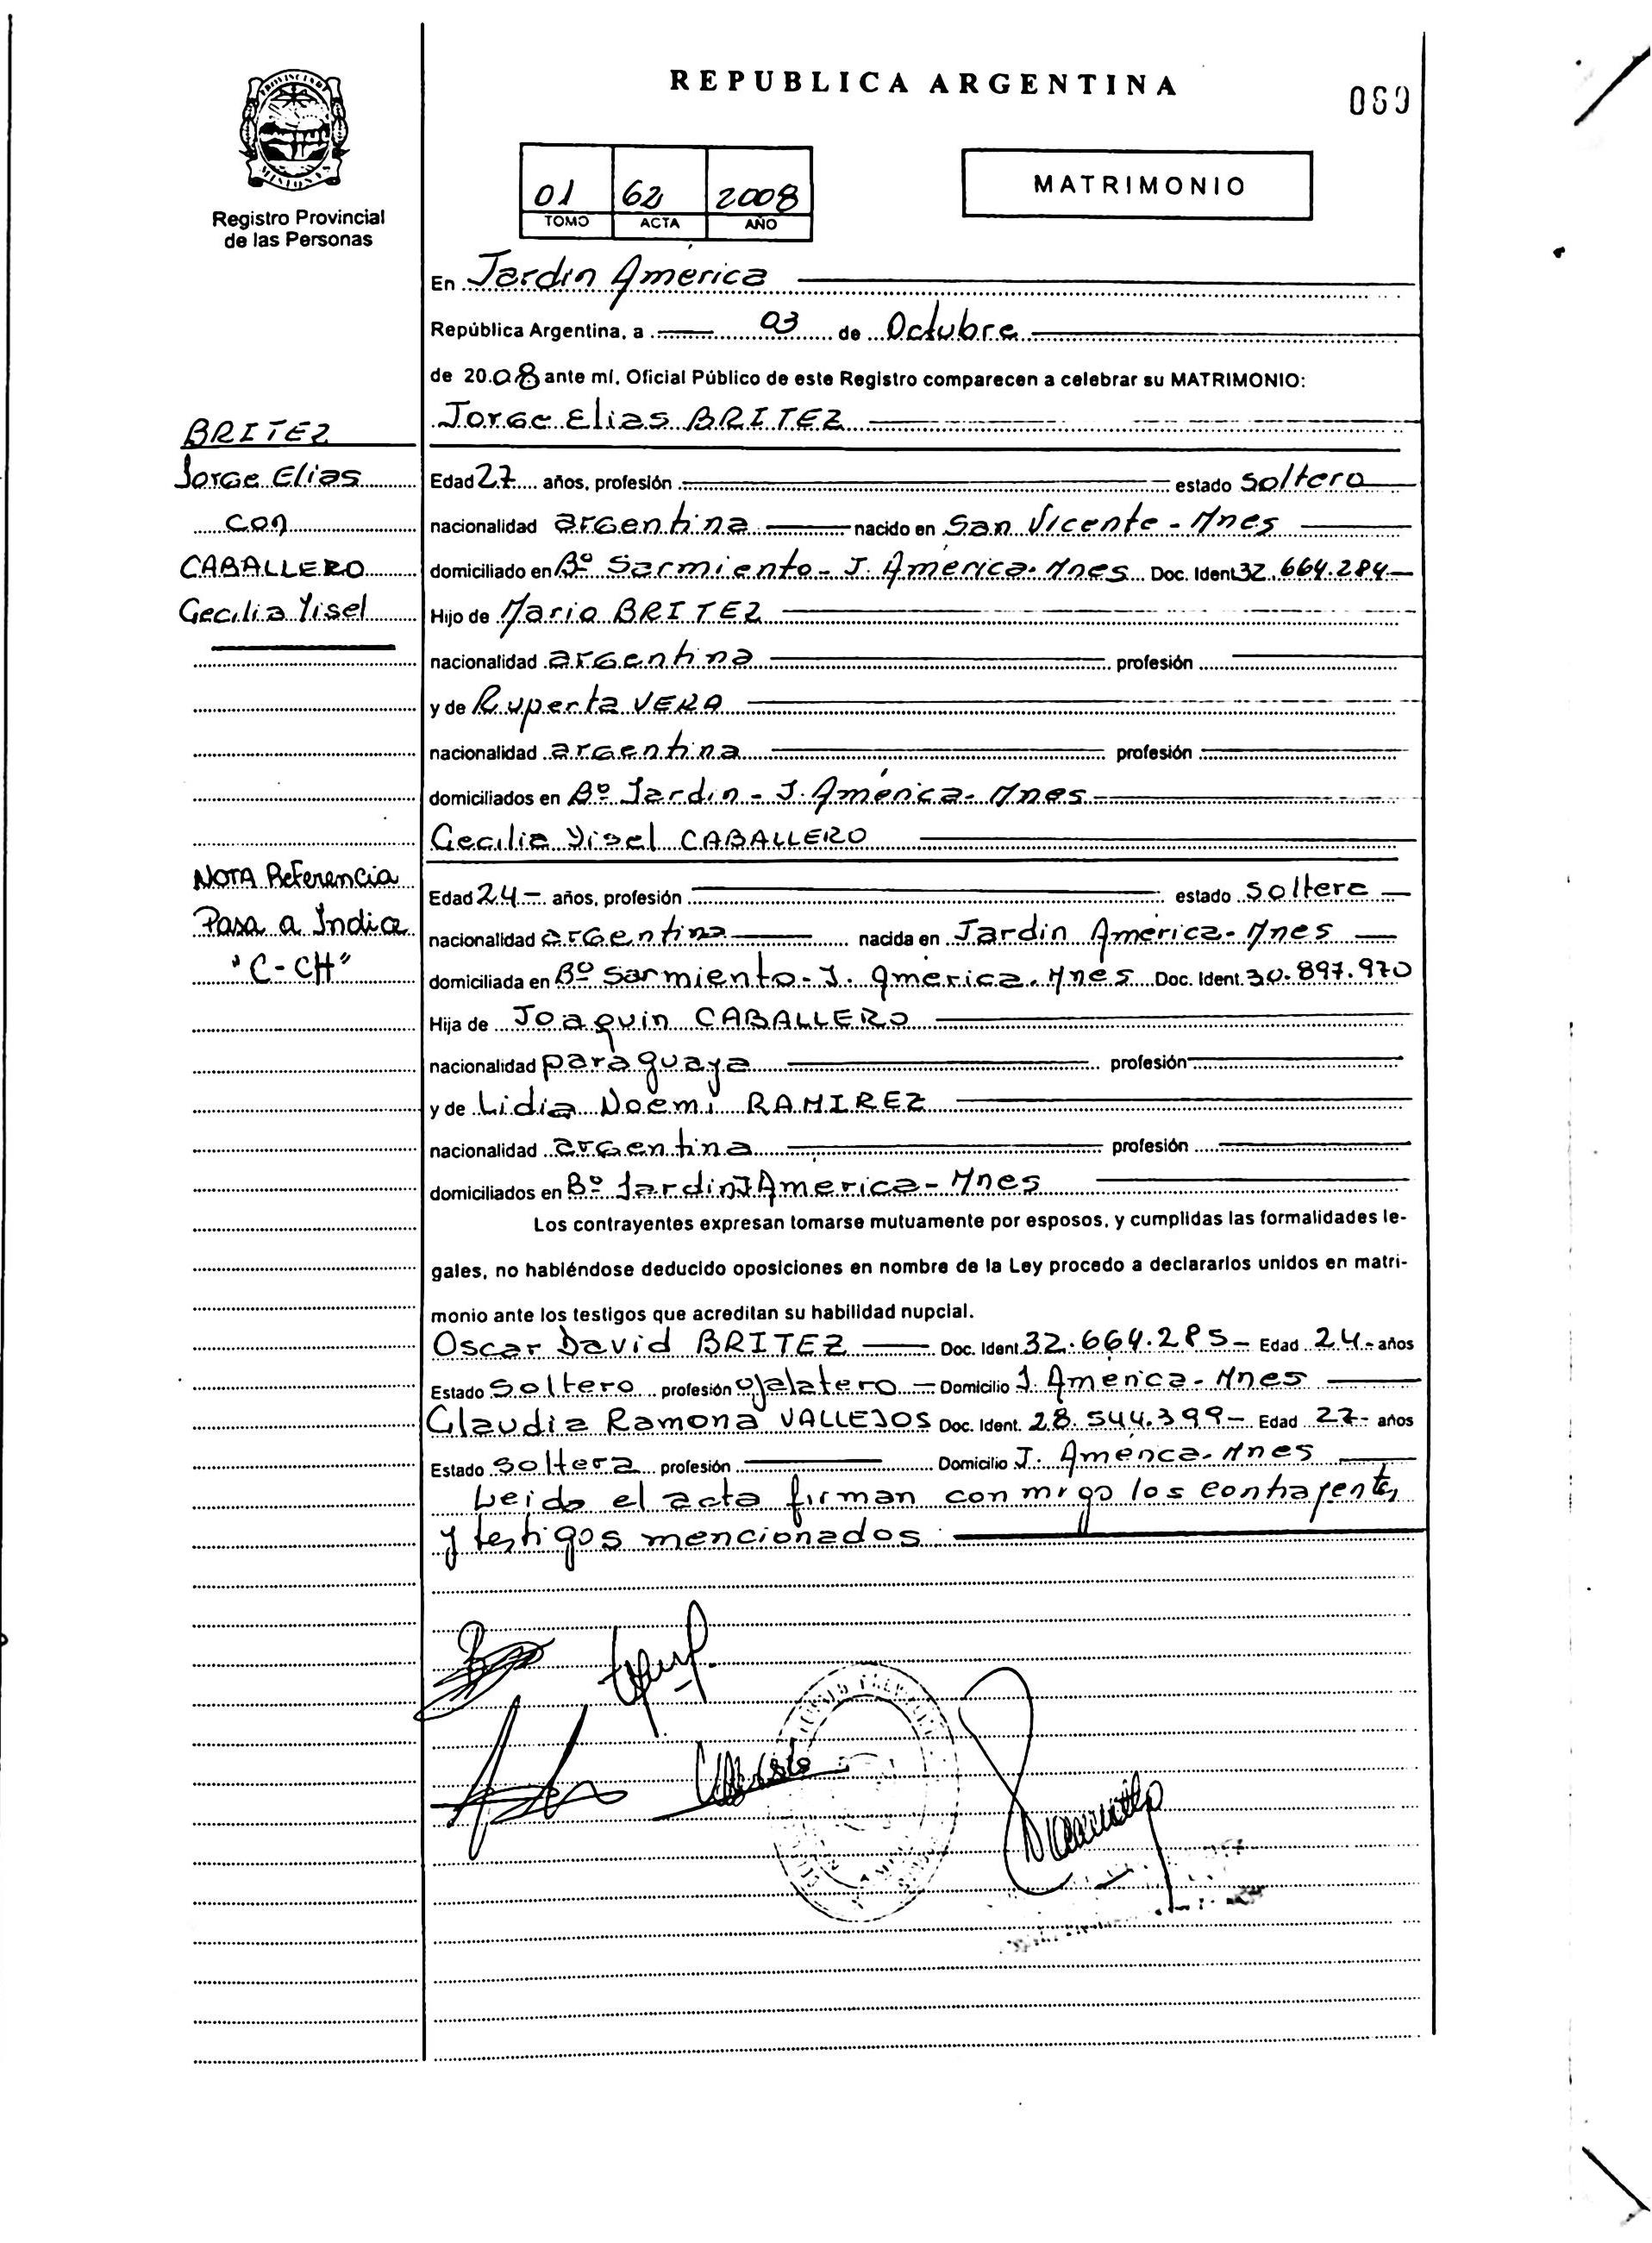 REPUBLICA ARGENTINA
PROVINCIA DE
MISIONES
Registro Provincial
de las Personas
01 62 2008
TOMO ACTA AÑO
MATRIMONIO
En Jardin América
República Argentina, a 03 de Octubre
de 2008 ante mí. Oficial Público de este Registro comparecen a celebrar su MATRIMONIO:
Jorge Elias BRITEZ
BRITEZ
Jorge Elias
con
CABALLERO
Cecilia Yisel
Edad 27 años, profesión estado soltero
nacionalidad argentina nacido en San Vicente - Mnes
domiciliado en Bº Sarmiento - J. América - Mnes Doc. Ident. 32.664.284
Hijo de Mario BRITEZ
nacionalidad argentina profesión
y de Ruperta VERA
nacionalidad argentina profesión
domiciliados en Bº Jardin - J. América - Mnes
Cecilia Yisel CABALLERO
NOTA Referencia
Pasa a Indice
"C-CH"
Edad 24 - años, profesión estado soltera
nacionalidad argentina nacida en Jardin América - Mnes
domiciliada en Bº Sarmiento - J. América - Mnes Doc. Ident. 30.897.970
Hija de Joaquin CABALLERO
nacionalidad paraguaya profesión
y de Lidia Noemi RAMIREZ
nacionalidad argentina profesión
domiciliados en Bº Jardin J America - Mnes
Los contrayentes expresan tomarse mutuamente por esposos, y cumplidas las formalidades le-
gales, no habiéndose deducido oposiciones en nombre de la Ley procedo a declararlos unidos en matri-
monio ante los testigos que acreditan su habilidad nupcial.
Oscar David BRITEZ Doc. Ident. 32.664.285 - Edad 24 - años
Estado soltero profesión ojalatero - Domicilio J. América - Mnes
Claudia Ramona VALLEJOS Doc. Ident. 28.544.399 - Edad 27 - años
Estado soltera profesión Domicilio J. América - Mnes
Leida el acta firman conmigo los contrayentes
y testigos mencionados